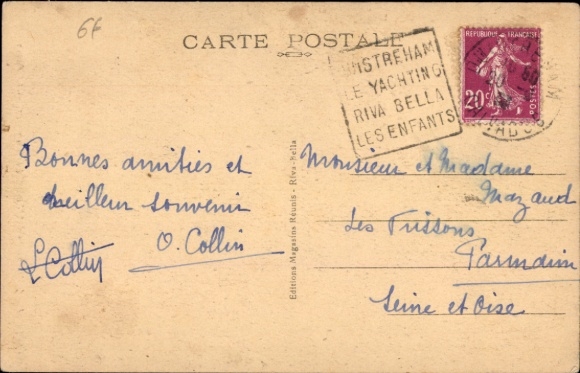 66
CARTE POSTALE
OUISTREHAM
LE YACHTING
RIVA BELLA
LES ENFANTS
REPUBLIQUE FRANÇAISE
20c
POSTES
Bonnes amitiés et
meilleur souvenir
O. Collin
Collin
Editions Magasins Réunis - Riva-Bella
Monsieur et Madame
Mazaud
Les Frissons
Parmain
Seine et Oise